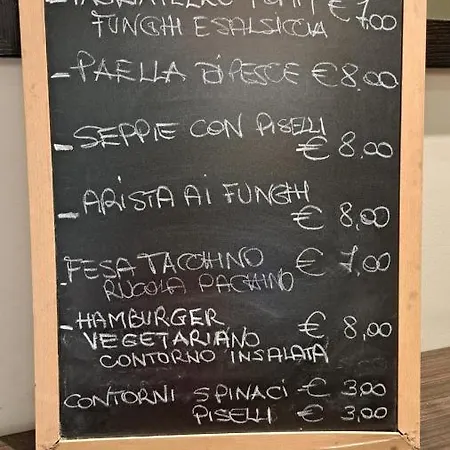 € 7,00
FUNGHI E SALSICCIA
- PAELLA DI PESCE € 8,00
- SEPPIE CON PISELLI
€ 8,00
- ARISTA AI FUNGHI
€ 8,00
- FESA TACCHINO € 7,00
RUCOLA PACHINO
- HAMBURGER
VEGETARIANO € 8,00
CONTORNO INSALATA
CONTORNI SPINACI € 3,00
PISELLI € 3,00